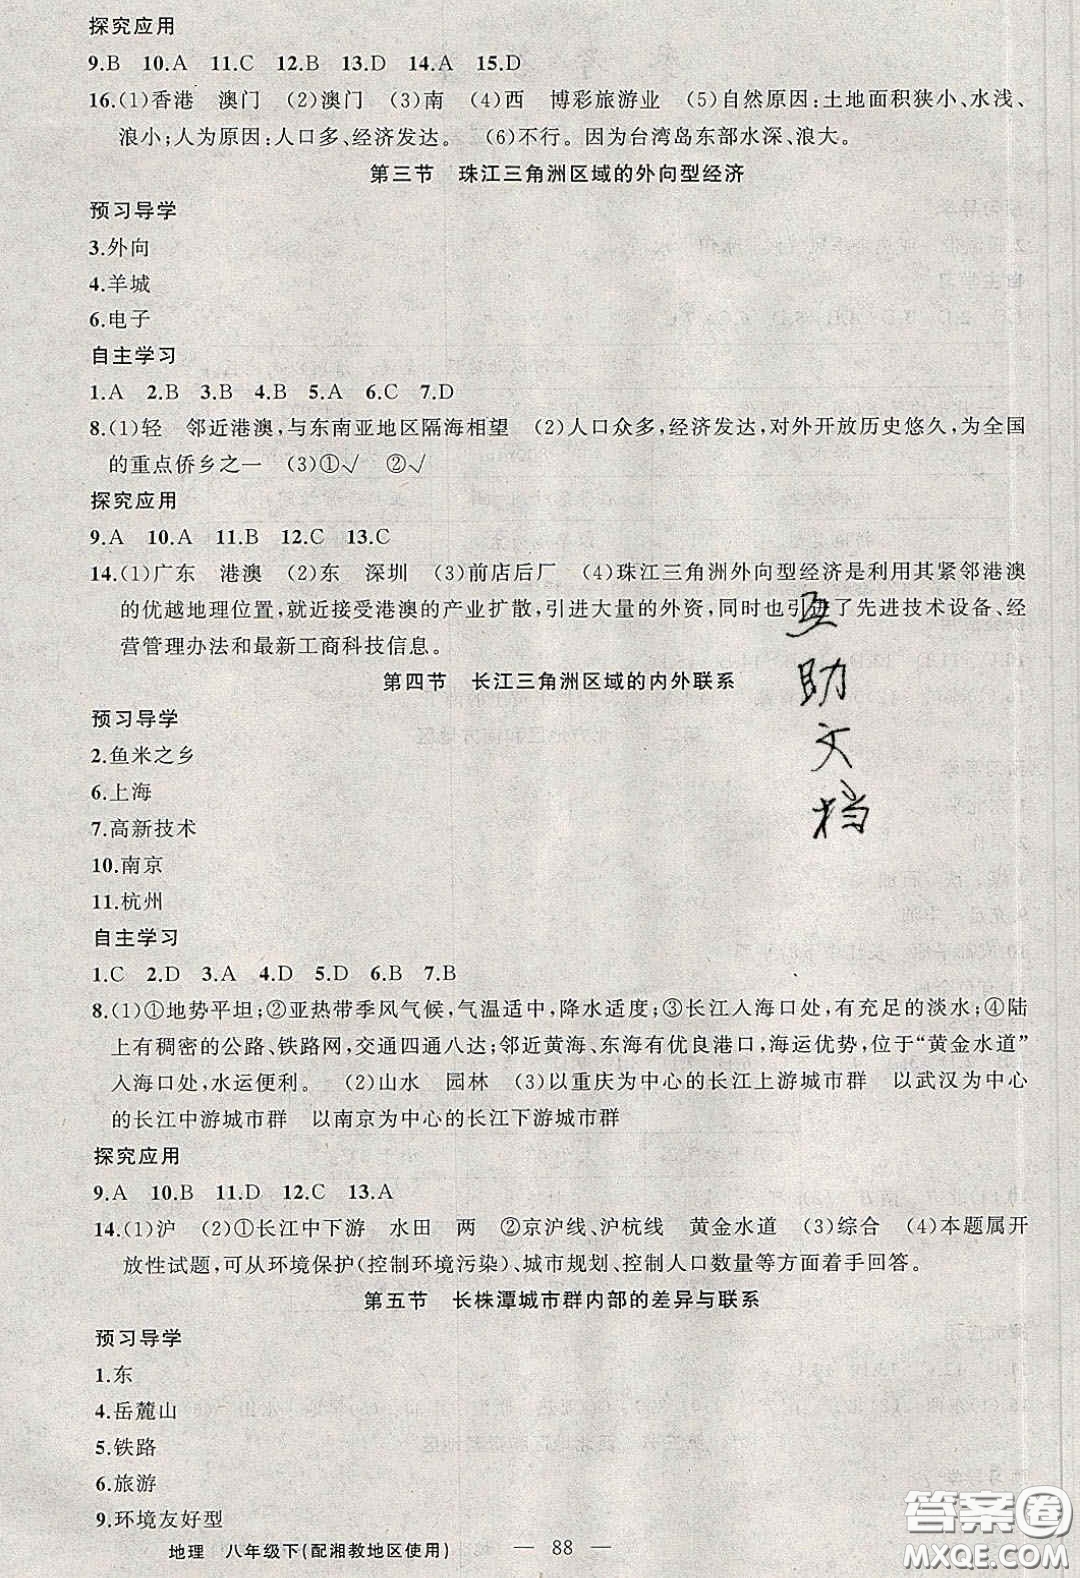 探究应用
9.B 10.A 11.C 12.B 13.D 14.A 15.D
16.(1)香港 澳门 (2)澳门 (3)南 (4)西 博彩旅游业 (5)自然原因:土地面积狭小、水浅、
浪小;人为原因:人口多、经济发达。 (6)不行。因为台湾岛东部水深、浪大。
第三节 珠江三角洲区域的外向型经济
预习导学
3.外向
4.羊城
6.电子
自主学习
1.A 2.B 3.B 4.B 5.A 6.C 7.D
8.(1)轻 邻近港澳,与东南亚地区隔海相望 (2)人口众多,经济发达,对外开放历史悠久,为全国
的重点侨乡之一 (3)①√ ②√
探究应用
9.A 10.A 11.B 12.C 13.C
14.(1)广东 港澳 (2)东 深圳 (3)前店后厂 (4)珠江三角洲外向型经济是利用其紧邻港澳
的优越地理位置,就近接受港澳的产业扩散,引进大量的外资,同时也引进了先进技术设备、经
营管理办法和最新工商科技信息。
第四节 长江三角洲区域的内外联系
预习导学
2.鱼米之乡
6.上海
7.高新技术
10.南京
11.杭州
互
助
文
档
自主学习
1.C 2.D 3.A 4.D 5.D 6.B 7.B
8.(1)①地势平坦;②亚热带季风气候,气温适中,降水适度;③长江入海口处,有充足的淡水;④陆
上有稠密的公路、铁路网,交通四通八达;邻近黄海、东海有优良港口,海运优势,位于“黄金水道”
入海口处,水运便利。 (2)山水 园林 (3)以重庆为中心的长江上游城市群 以武汉为中心
的长江中游城市群 以南京为中心的长江下游城市群
探究应用
9.A 10.B 11.D 12.C 13.A
14.(1)沪 (2)①长江中下游 水田 两 ②京沪线、沪杭线 黄金水道 (3)综合 (4)本题属开
放性试题,可从环境保护(控制环境污染)、城市规划、控制人口数量等方面着手回答。
第五节 长株潭城市群内部的差异与联系
预习导学
1.东
4.岳麓山
5.铁路
6.旅游
9.环境友好型
地理 八年级下(配湘教地区使用) — 88 —
答案圈
MXQE.COM